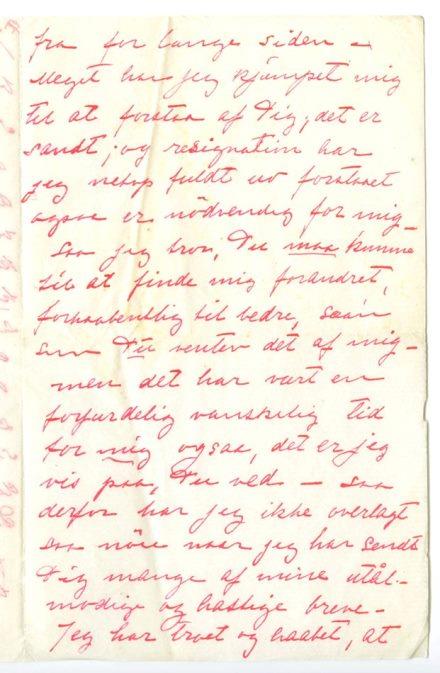 fra for lange siden –
Meget har jeg kjæmpet mig
til at forstaa af Dig, det er
sandt; og resignation har
jeg netop fuldt ud forstaaet
ogsaa er nödvendig for mig –
saa jeg tror, Du maa kunne
til at finde mig forandret,
forhaabentlig til bedre, saan
som Du venter det af mig –
men det har vært en
forfærdelig vanskelig tid
for mig ogsaa, det er jeg
vis paa, Du ved – saa
derfor har jeg ikke overlagt
saa nöie naar jeg har sendt
Dig mange af mine utål-
modige og hastige breve –
Jeg har troet og haabet, at